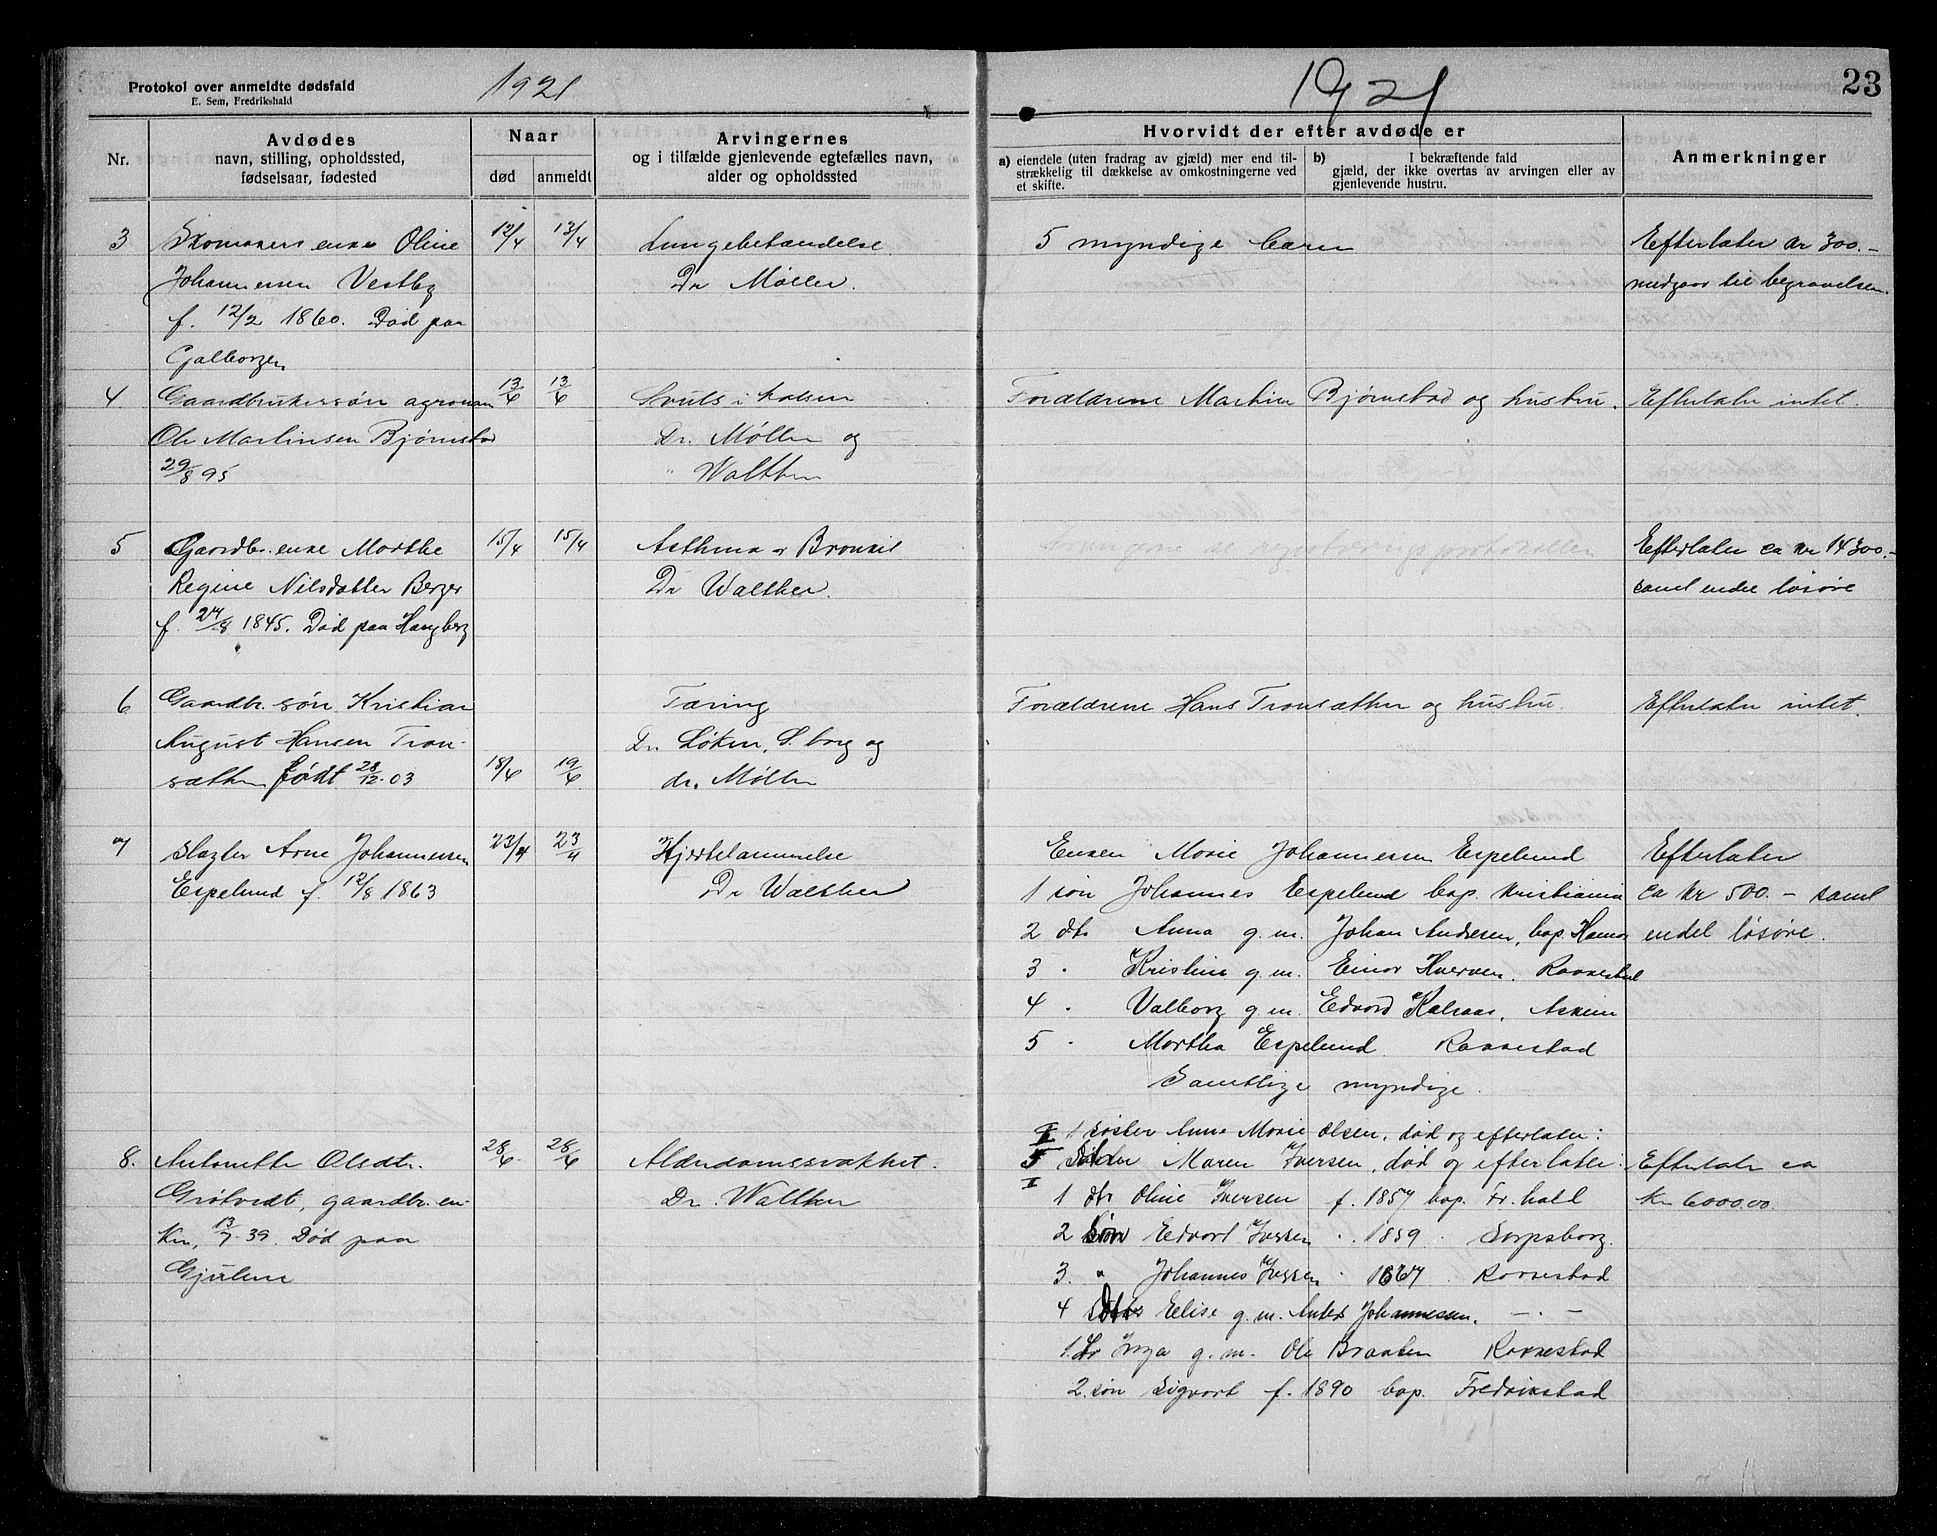 Protokol over anmeldte dødsfald
E. Sem, Fredrikshald
1921
1921
23
Nr.
Avdødes
navn, stilling, opholdssted,
fødselsaar, fødested
Naar
død
anmeldt
Arvingernes
og i tilfælde gjenlevende egtefælles navn,
alder og opholdssted
Hvorvidt der efter avdøde er
a) eiendele (uten fradrag av gjæld) mer end til-
strækkelig til dækkelse av omkostningerne ved
et skifte.
b) I bekræftende fald
gjæld, der ikke overtas av arvingen eller av
gjenlevende hustru.
Anmerkninger
3 Skomakers enke Oline 12/4 13/4 Lungebetændelse 5 myndige barn Efterlater kr 300.-
Johannessen Vestby Dr Møller. medgaar til begravelsen.
f. 12/2 1860. Død paa
Galborger
4 Gaardbrukersøn agronom 13/6 13/6 Svuls i halsen Forældrene Martin Bjørnstad og hustru. Efterlater intet.
Ole Martinsen Bjørnstad Dr. Møller og
29/8 95 " Walther
5 Gaardbr. enke Marthe 15/4 15/4 Asthma og Bronkit Arvingerne se registreringsprotokollen Efterlater ca kr 14300.-
Regine Nilsdatter Berger Dr Walther. samt endel løsøre
f. 24/8 1845. Død paa Haugberg
6 Gaardbr. søn Kristian Tæring Forældrene Hans Tronsæther og hustru. Efterlater intet.
August Hansen Tron- Dr. Løken, S.borg og
sæther født 28/12-03 18/6 19/6 dr. Møller
7 Slagter Arne Johannessen 23/4 23/4 Hjertelammelse Enken Marie Johannessen Espelund Efterlater
Espelund f. 12/8 1863 Dr Walther 1 søn Johannes Espelund bop. Kristiania ca kr 500.- samt
2 dtr Anna g.m. Johan Andresen, bop. endel løsøre.
3 " Kristine g.m. Einar Hverven. Rakkestad
4 " Valborg g.m. Edvard Kalsaas, Askim
5 " Martha Espelund Rakkestad
Samtlige myndige.
I 1 søster Anne Marie Olsen, død og efterlater:
8. Antonette Olsdtr. 28/6 28/6 Alderdomssvakhet. Maren Iversen, død og efterlater: Efterlater ca
Grøtvedt, gaardbr.en- Dr. Walther 1 dtr Oline Iversen f. 1857 bop. Fr.hald Kr. 6000.00.
ke, 13/7 39. Død paa 2 søn Edvart Iversen " 1859 " Sarpsborg.
Gjulem 3. " Johannes Iversen " 1867 Rakkestad
4 dtr Elise g.m. Anders Johannesen. - " -
1. dtr Inga g.m. Ole Braaten Rakkestad
2. søn Sigvart f. 1890 bop. Fredrikstad